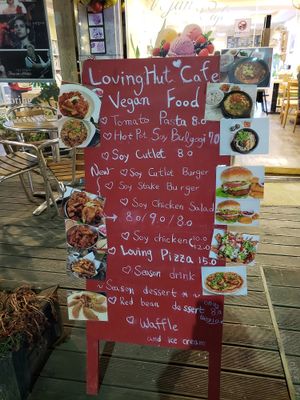 Loving Hut Cafe
Vegan Food
Tomato Pasta 8.0
Hot Pot Soy Bulgogi 7.0
Soy Cutlet 8.0
New
Soy Cutlet Burger
Soy Stake Burger
Soy Chicken Salad
→ 8.0/9.0/8.0
Soy chicken 10.0
12.0
Loving Pizza 15.0
Season drink
Season dessert
Red bean dessert
8.0
Waffle
and ice cream